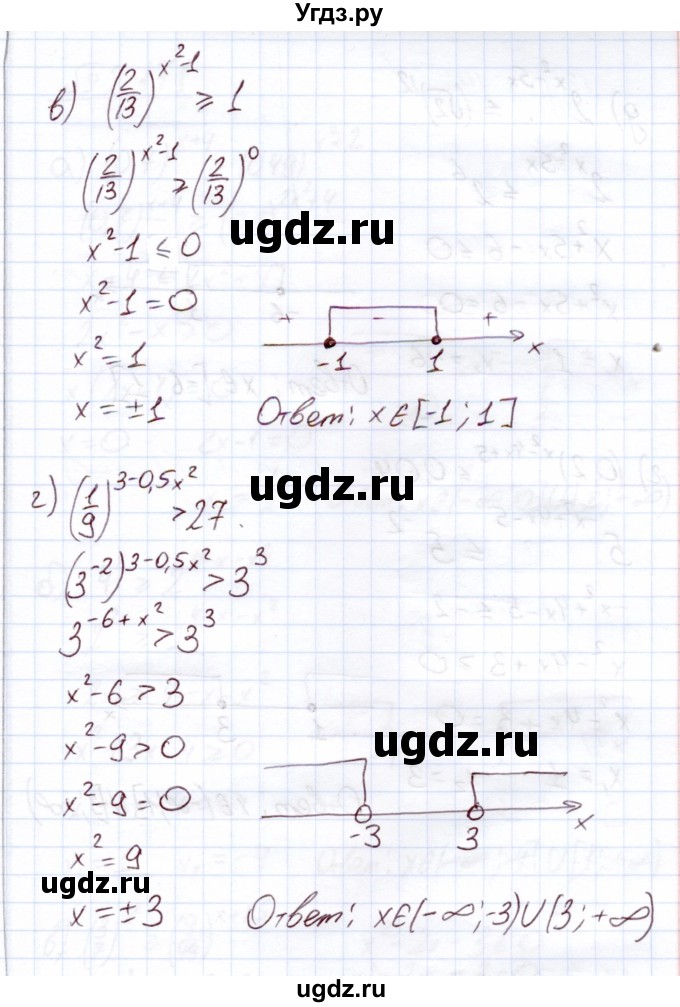 Угдз.ру
в) (2/13)^(x²-1) ≥ 1
(2/13)^(x²-1) ≥ (2/13)^0
ugdz.ru
x²-1 ≤ 0
x²-1 = 0
+ - +
-1 1 x
x² = 1
x = ±1 Ответ: x∈[-1; 1]
ugdz.ru
г) (1/9)^(3-0,5x²) > 27.
(3^-2)^(3-0,5x²) > 3^3
3^(-6+x²) > 3^3
x²-6 > 3
x²-9 > 0
ugdz.ru
x²-9 = 0
-3 3 x
x² = 9
ugdz.ru
x = ±3 Ответ: x∈(-∞;-3)∪(3;+∞)
ugdz.ru